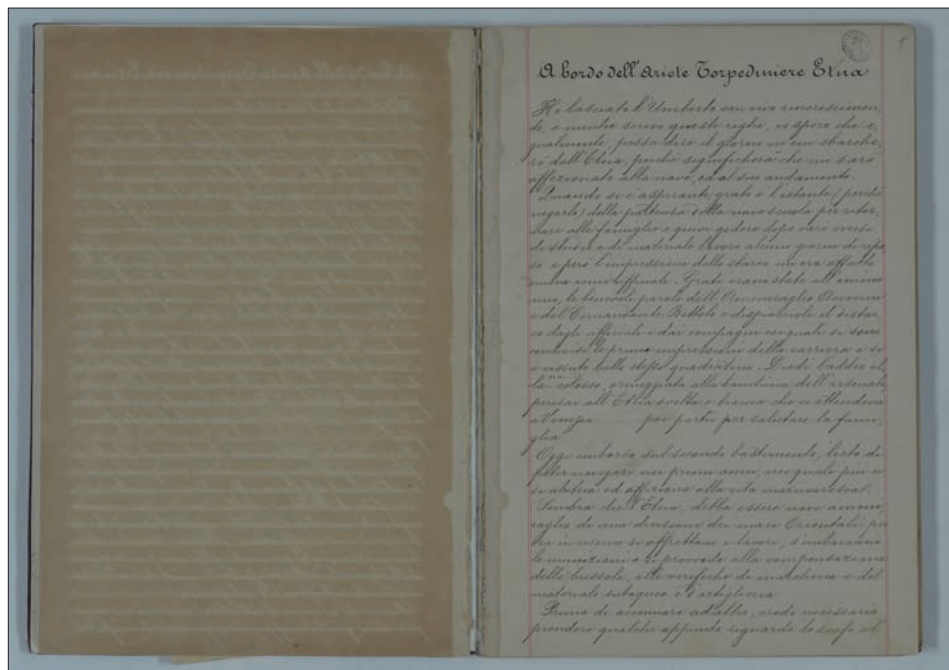 1
A bordo dell'Ariete Torpediniere Etna
Ho lasciato l'Umberto con vivo rincrescimen
to, e mentre scrivo queste righe, io spero che e,
gualmente, possa dire il giorno in cui sbarche,
rò dall'Etna, perchè significherà che mi sarò
affezionato alla nave, ed al suo andamento.
Quando si è aspiranti, grato è l'istante (perchè
negarlo) della partenza dalla nave scuola per ritor,
nare alle famiglie e quivi godere dopo vari mesi
di studio e di materiale lavoro alcuni giorni di ripo
so e però l'impressione dello sbarco mi era affatto
nuova come ufficiale. Grate erano state all'animo
mio, le benevole parole dell'Ammiraglio Accinni
e del Comandante Bettolo e dispiacevole il distac,
co dagli ufficiali e dai compagni coi quali si sono
condivise le prime impressioni della carriera e si
è vissuto nello stesso quadratino. Diedi l'addio al
colosso, ormeggiato alla banchina dell'arsenale
pensai all'Etna svelta e bianca che ci attendeva
a Venezia poi partii per salutare la fami,
glia.
Oggi imbarco sul secondo bastimento, lieto di
poter navigare nei primi anni, nei quali più ci
si abitua ed affeziona alla vita marinaresca.
Sembra che l'Etna, debba essere nave ammi,
raglia di una divisione dei mari Orientali; per
si affrettano i lavori, s'imbarcano
le munizioni e si provvede alla compensazione
delle bussole, alle verifiche di macchina e del
materiale subacqueo e d'artiglieria.
Prima di accennare ad altro, credo necessario
prendere qualche appunto riguardo lo scafo ed